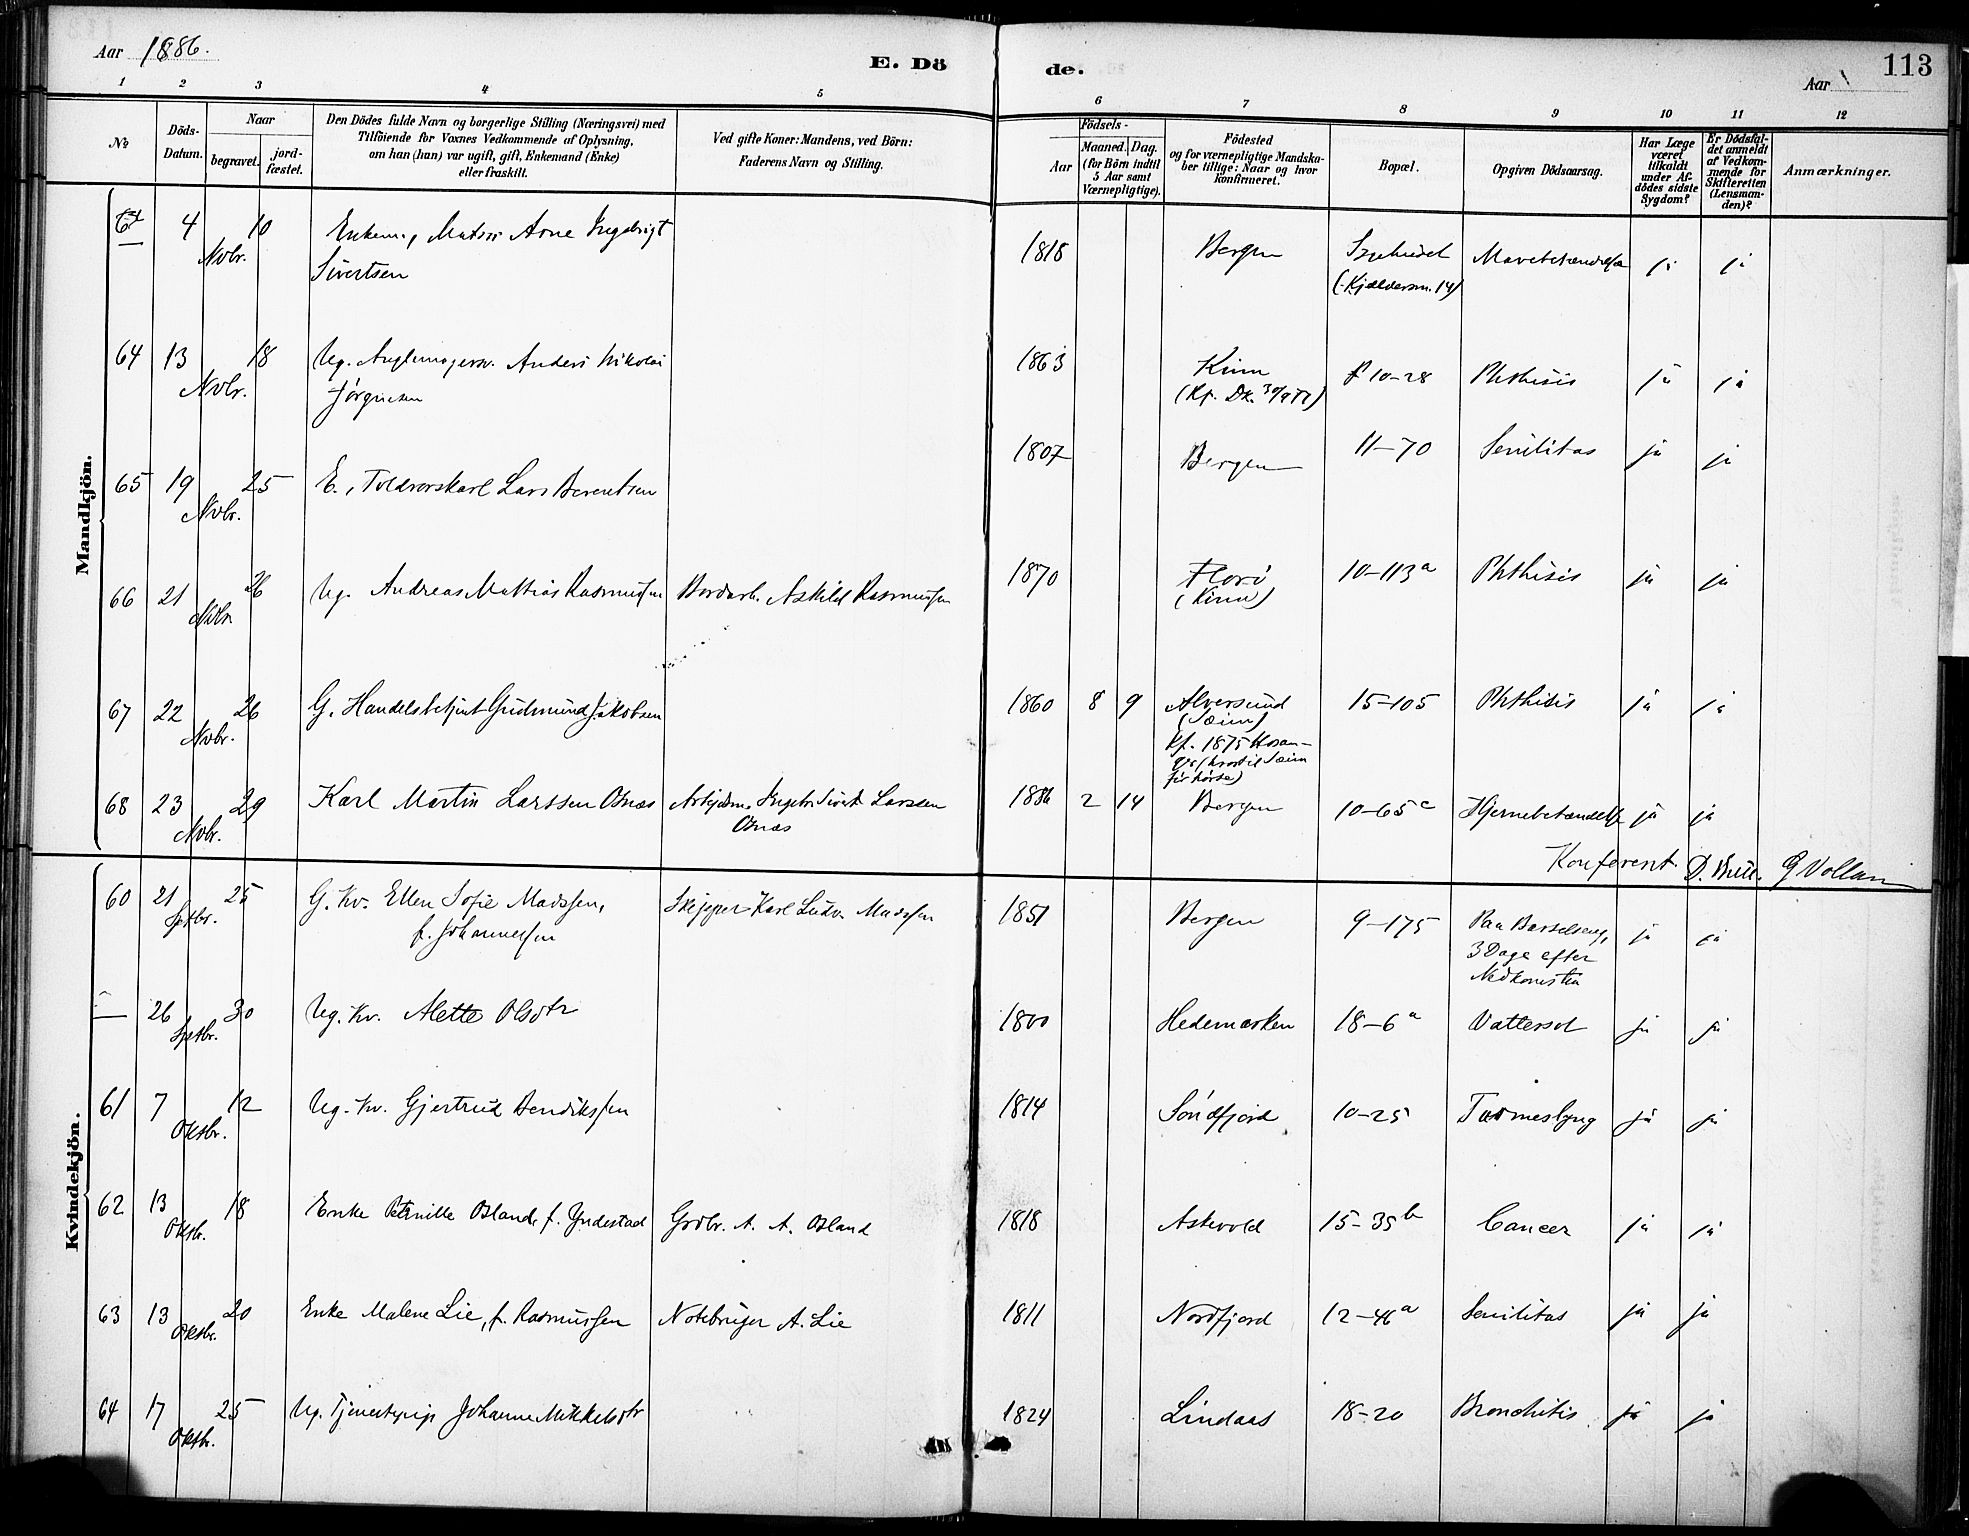 Aar 1886.
E. Döde.
Aar
113
1 2 3 4 5 6 7 8 9 10 11 12
№
Döds-Datum.
Naar
begravet.
jord-fæstet.
Den Dödes fulde Navn og borgerlige Stilling (Næringsvei) med
Tilföiende for Voxnes Vedkommende af Oplysning,
om han (hun) var ugift, gift, Enkemand (Enke)
eller fraskilt.
Ved gifte Koner: Mandens, ved Börn:
Faderens Navn og Stilling.
Födsels-
Aar
Maaned. Dag.
(for Börn indtil
5 Aar samt
Værnepligtige).
Födested
og for værnepligtige Mandska-
ber tillige: Naar og hvor
konfirmeret.
Bopæl.
Opgiven Dödsaarsag.
Har Læge
været
tilkaldt
under Af-
dödes sidste
Sygdom?
Er Dödsfal-
det anmeldt
af Vedkom-
mende for
Skifteretten
(Lensman-
den)?
Anmærkninger.
Mandkjön.
4 10 Enkem., Matros Arne Ingebrigt 1818 Bergen Mavebetændelse ja ja
Novbr. Sivertsen (Kjældersm. 14)
64 13 18 Ug. Anders Nikolai 1863 Kinn 10-28 Phthisis ja ja
Novbr. Jörgensen
65 19 25 E., Lars Berentsen 1807 Bergen 11-70 Senilitas ja ja
Novbr.
66 21 26 Ug. Andreas Mattias Rasmussen Askild Rasmussen 1870 Florö 10-113a Phthisis ja ja
Novbr. (Kinn)
67 22 26 G. Handelsbetjent Gudmund Jakobsen 1860 8 9 Alversund 15-105 Phthisis ja ja
Novbr. (Sæim)
Kf. 1875 Hosan-
68 23 29 Karl Martin Larssen Osnæs Arbejdsm. Ingebr. Sivert Larssen 1886 2 14 Bergen 10-65c Hjernebetændelse ja ja
Novbr. Osnæs
Konferert. D. Bull. G Vollan
Kvindekjön.
60 21 25 G. Kv. Ellen Sofie Madssen, Skipper Karl Ludv. Madssen 1851 Bergen 9-175 Paa Barselseng, ja ja
Septbr. f. Johannessen 3 Dage efter
Nedkomsten
— 26 30 Ug. Kv. Alette Olsdtr 1800 Hedemarken 18-6a Vattersot ja ja
Septbr.
61 7 12 Ug. Kv. Gjertrud Bendikssen 1814 Söndfjord 10-25 ja ja
Oktbr.
62 13 18 Enke Pernille Osland f. Yndestad Grdbr. A. A. Osland 1818 Askevold 15-35b Cancer ja ja
Oktbr.
63 13 20 Enke Malene Lie, f. Rasmussen Notebruger A. Lie 1811 Nordfjord 12-46a Senilitas ja ja
Oktbr.
64 17 25 Ug. Tjenestepige Johanne Mikkelsdtr 1824 Lindaas 18-20 Bronchitis ja ja
Oktbr.